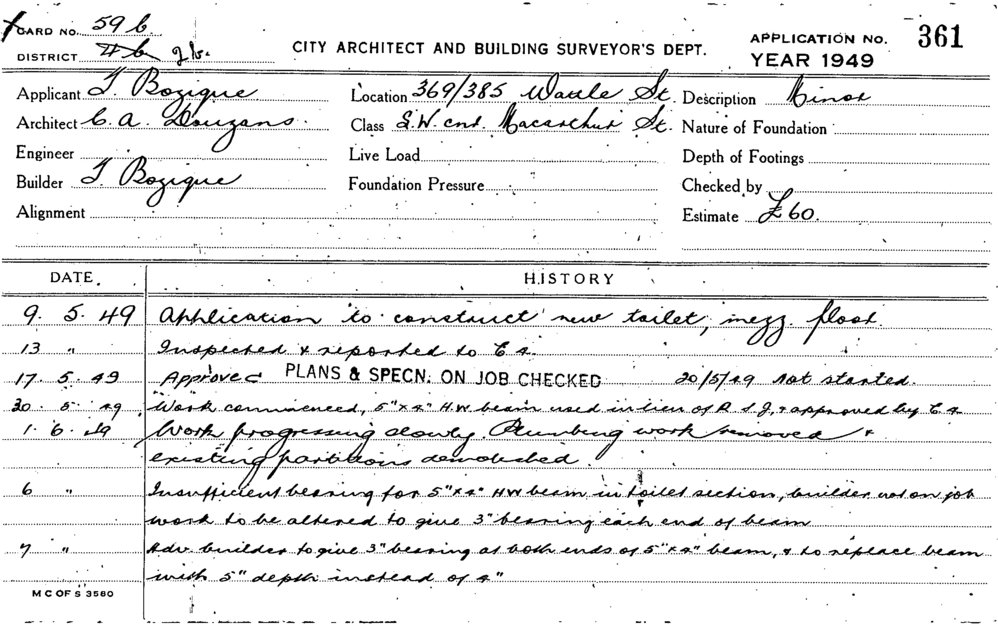 CARD No. 59 b.
DISTRICT 4b 2b.
CITY ARCHITECT AND BUILDING SURVEYOR'S DEPT.
APPLICATION No. 361
YEAR 1949
Applicant T. Bozique Location 369/385 Wattle St. Description Minor
Architect C. A. Class S.W. cnr. Macarthur St. Nature of Foundation
Engineer Live Load Depth of Footings
Builder T. Bozique Foundation Pressure Checked by
Alignment Estimate £60.
DATE. HISTORY
9. 5. 49 Application to construct new toilet, mezz. floor.
13 " Inspected & reported to
17. 5. 49 Approved PLANS & SPECN. ON JOB CHECKED 20/5/49 Not started.
30. 5. 49 Work commenced, 5"x4" HW beam used in lieu of R S J, & approved by
1. 6. 49 Work progressing slowly. Plumbing work removed &
existing partitions demolished.
6 " Insufficient bearing for 5"x4" HW beam in toilet section, builder not on job
work to be altered to give 3" bearing each end of beam
7 " Adv. builder to give 3" bearing at both ends of 5"x4" beam, & to replace beam
with 5" depth instead of 4"
M C OF S 3580